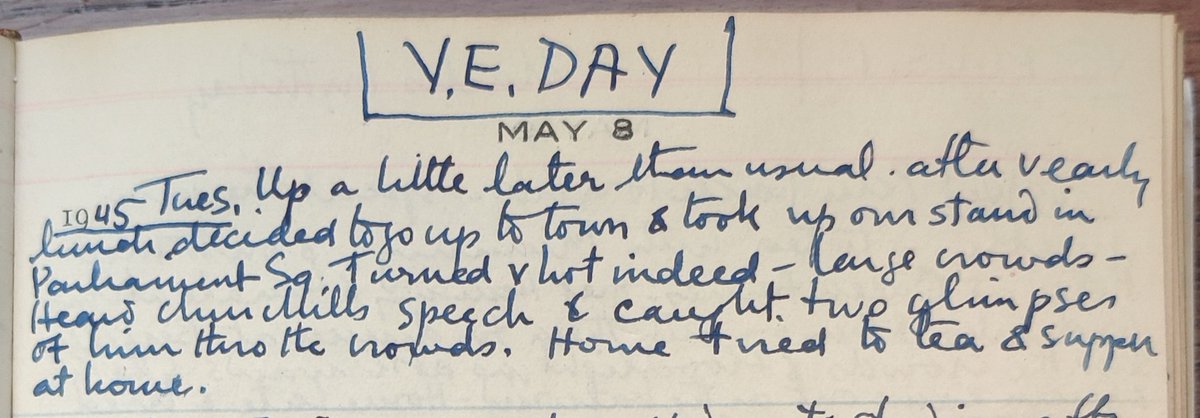 V.E. DAY
MAY 8
1945 Tues. Up a little later than usual. after v early
lunch decided to go up to town & took up our stand in
Parliament Sq. Turned v hot indeed - large crowds -
Heard Churchills speech & caught two glimpses
of him thro the crowds. Home tired to tea & supper
at home.